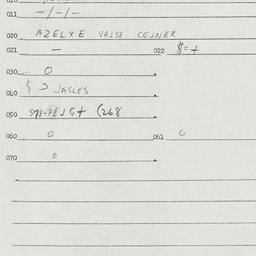 011 -/-/-
020 AZELXE VAJSE CEJNER
021 - 022 $=+
030 0
040 $ > JASLES
050
060 0 061 0
070 0